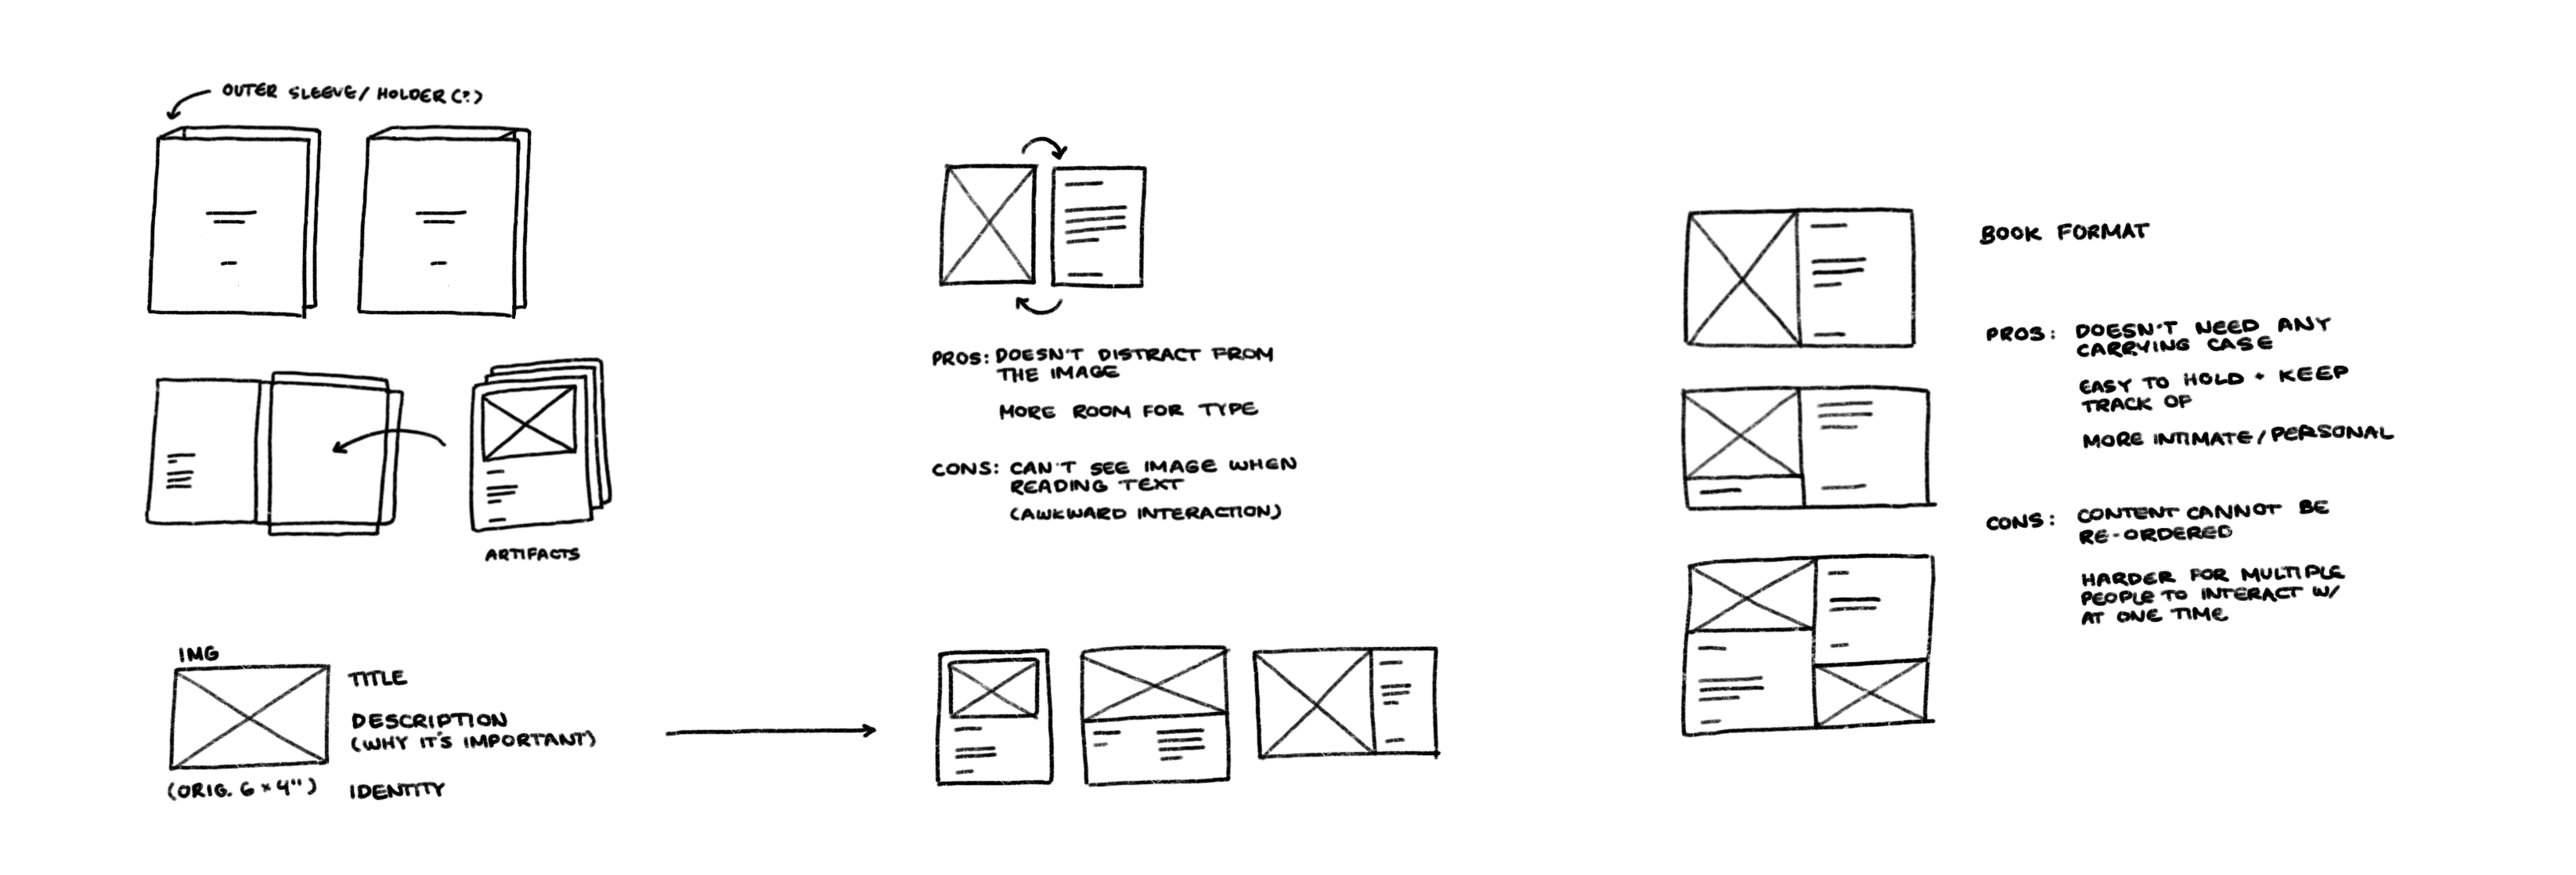 OUTER SLEEVE/HOLDER(?)
ARTIFACTS
IMG
TITLE
DESCRIPTION
(WHY IT'S IMPORTANT)
(ORIG. 6 × 4")
IDENTITY
PROS: DOESN'T DISTRACT FROM
THE IMAGE
MORE ROOM FOR TYPE
CONS: CAN'T SEE IMAGE WHEN
READING TEXT
(AWKWARD INTERACTION)
BOOK FORMAT
PROS: DOESN'T NEED ANY
CARRYING CASE
EASY TO HOLD + KEEP
TRACK OF
MORE INTIMATE/PERSONAL
CONS: CONTENT CANNOT BE
RE-ORDERED
HARDER FOR MULTIPLE
PEOPLE TO INTERACT W/
AT ONE TIME